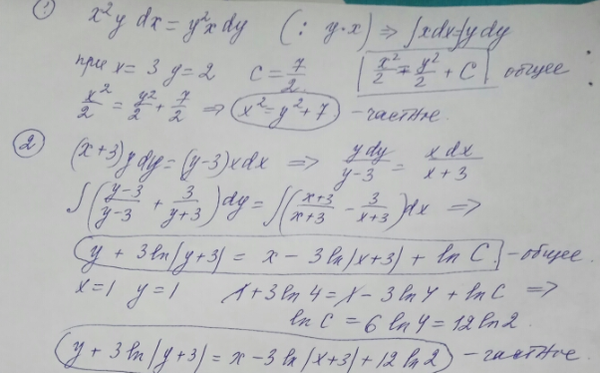 ① x²y dx = y²x dy (: y·x) ⇒ ∫xdx=∫ydy
при x = 3 y = 2 C = 7/2 x²/2 = y²/2 + C общее
x²/2 = y²/2 + 7/2 ⇒ x² = y² + 7 - частное.
② (x+3)y dy = (y-3)x dx ⇒ y dy/y-3 = x dx/x+3
∫(y-3/y-3 + 3/y+3)dy = ∫(x+3/x+3 - 3/x+3)dx ⇒
y + 3 ln|y+3| = x - 3 ln|x+3| + ln C. - общее.
x=1 y=1 1+3 ln 4 = 1 - 3 ln 4 + ln C ⇒
ln C = 6 ln 4 = 12 ln 2.
y + 3 ln|y+3| = x - 3 ln|x+3| + 12 ln 2 - частное.